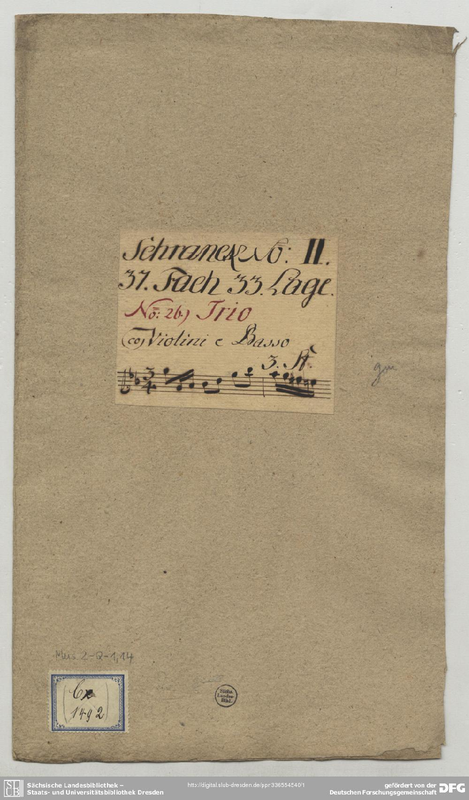 Schranck No: II.
31. Fach 33. Lage.
No: 26) Trio
co Violini e Basso
3. St.
gm
Mus. 2-Q-1,14
Cx
1492
Sächsische Landesbibliothek –
Staats- und Universitätsbibliothek Dresden
gefördert von der
Deutschen Forschungsgemeinschaft
DFG